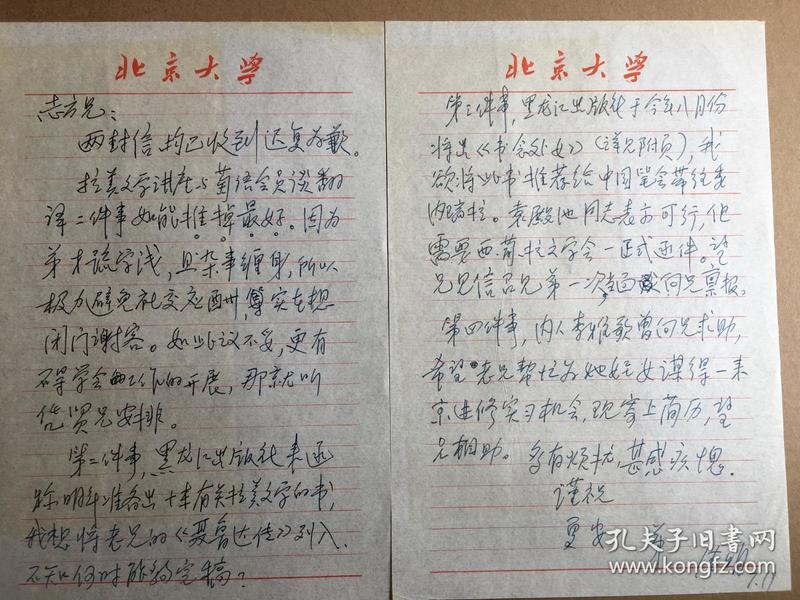 北京大学
志方兄：
两封信均已收到迟复为歉。
拉美文学讲座与葡语会员谈翻
译二件事如能推掉最好。因为
弟才疏学浅，且杂事缠身，所以
极力避免社交应酬，实在想
闭门谢客。如此议不妥，更有
碍学会工作的开展，那就听
凭贤兄安排。
第二件事，黑龙江出版社来函
明年准备出十本有关拉美文学的书，
我想将老兄的《聂鲁达传》列入，
不知何时能够完稿？
北京大学
第三件事，黑龙江出版社于今年八月份
将出《书念处女》（详见附页），我
欲将此书推荐给中国笔会带往委
内瑞拉。袁殿池同志表示可行，但
需要西葡拉文学会一正式函件。望
兄见信召兄弟一次面向兄禀报。
第四件事，内人李雅歌曾向兄求助，
希望老兄帮忙为她侄女谋得一来
京进修实习机会，现寄上简历，望
兄相助。多有烦扰，甚感疚愧。
谨祝
夏安 弟
孔夫子旧书网
www.kongfz.com